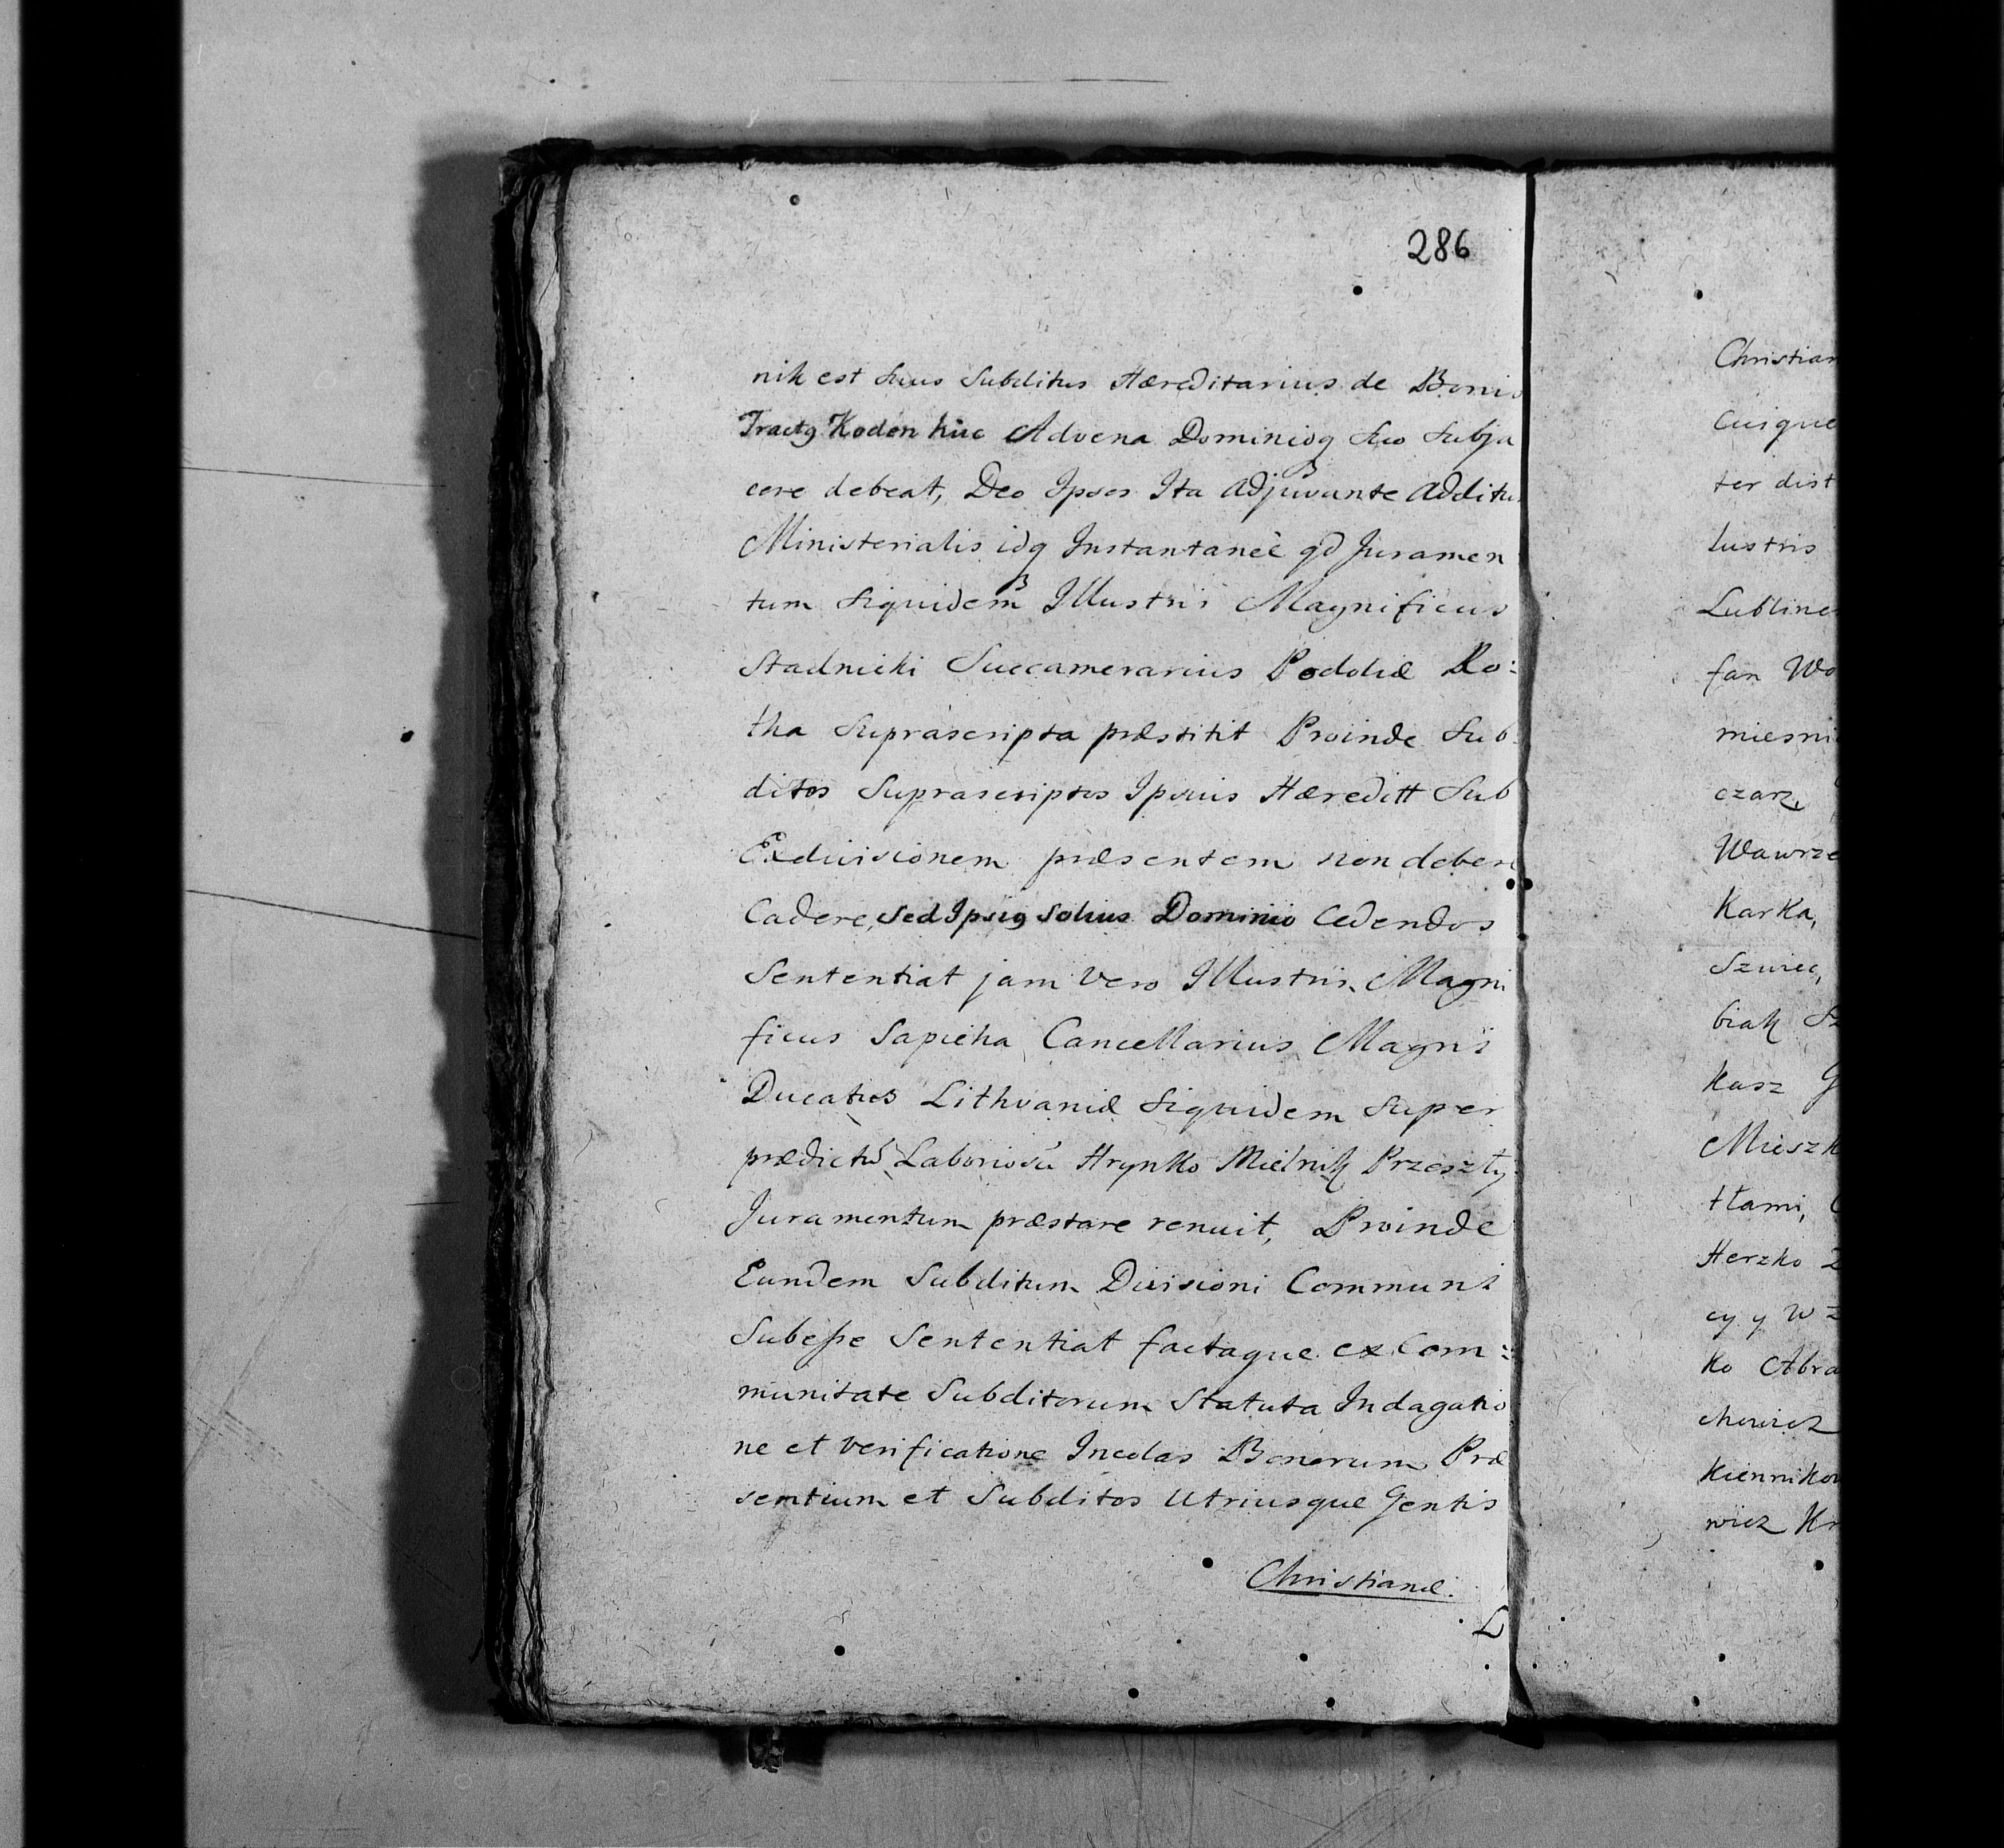 286
nik est suus Subditus Hæreditarius de Bonis
Tractg Koden huc Advena Dominioq Suo Subja
cere debeat, Deo Ipsos Ita Adjuvante Additus
Ministerialis idq Instantaneè qd Juramen
tum Siquidem Illustris Magnificus
Stadnicki Succamerarius Podoliæ Ro:
tha Suprascripta præstitit Proinde Sub
ditos Suprascriptos Ipsius Hæreditt Sub
Exdivisionem præsentem non debere
Cadere, Sed Ipsig Solius Dominio Cedendos
Sententiat jam Vero Illustris Magni
ficus Sapieha Cancellarius Magni
Ducatus Lithvaniæ Siquidem Super
prædictũ Laboriosũ Hrynko Mielnik Przeszły
Juramentum præstare renuit, Proinde
Eundem Subditum Divisioni Communi
Subesse Sententiat factaque ex Com:
munitate Subditorum Statuta Indagatio
ne et Verificatione Incolas Bonorum Præ
sentium et Subditos Utriusque Gentis
Christianæ.
Christian
Cuique
ter dist
lustris
Lubline
fan Wo
miesni
czarz,
Wawrze
Karka,
Szwiec,
biak Sz
kasz G
Mieszk
tłami,
Herzko
cy y w
ko Abra
chowicz
Kiennikow
wicz Kr